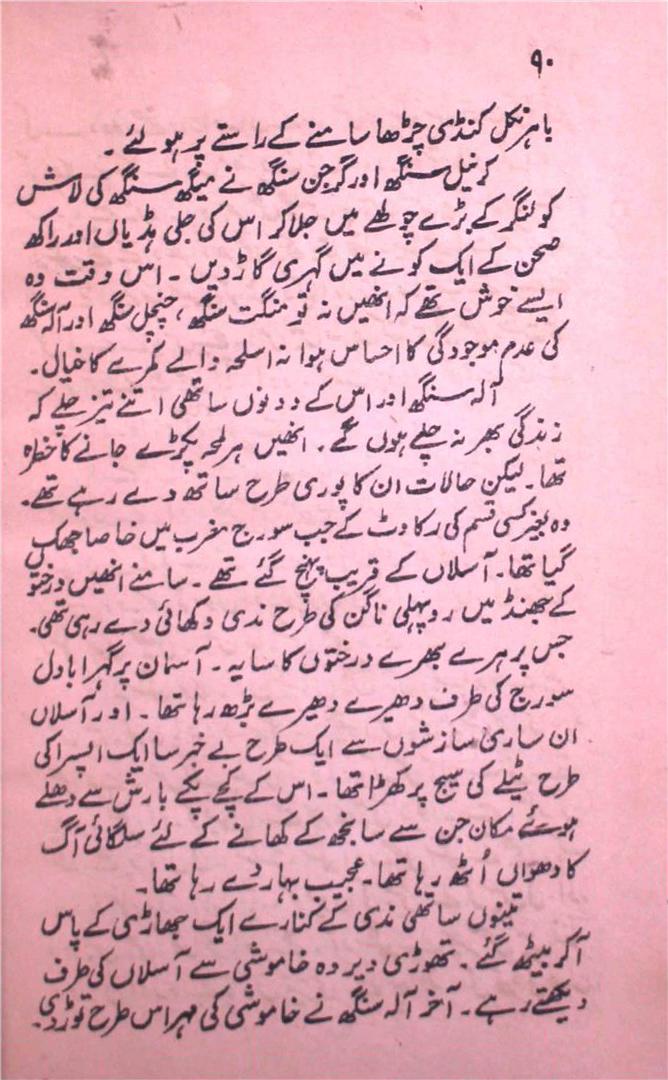 ۹۰
باہر نکل کنڈی چڑھا سامنے کے راستے پر ہو لئے ۔
کرنیل سنگھ اور گرجن سنگھ نے میگھ سنگھ کی لاش
کو لنگر کے بڑے چولھے میں جلا کر اس کی جلی ہڈیاں اور راکھ
صحن کے ایک کونے میں گہری گاڑ دیں ۔ اس وقت وہ
ایسے خوش تھے کہ انھیں نہ تو منگت سنگھ ، چنچل سنگھ اور آلہ سنگھ
کی عدم موجودگی کا احساس ہوا نہ اسلحہ والے کمرے کا خیال ۔
آلہ سنگھ اور اس کے دونوں ساتھی اتنے تیز چلے کہ
زندگی بھر نہ چلے ہوں گے ۔ انھیں ہر لمحہ پکڑے جانے کا خطرہ
تھا ۔ لیکن حالات ان کا پوری طرح ساتھ دے رہے تھے ۔
وہ بغیر کسی قسم کی رکاوٹ کے جب سورج مغرب میں خاصا جھک
گیا تھا ۔ آسلاں کے قریب پہنچ گئے تھے ۔ سامنے انھیں درختو
کے جھنڈ میں روپہلی ناگن کی طرح ندی دکھائی دے رہی تھی ۔
جس پر ہرے بھرے درختوں کا سایہ ۔ آسمان پر گہرا بادل
سورج کی طرف دھیرے دھیرے بڑھ رہا تھا ۔ اور آسلاں
ان ساری سازشوں سے ایک طرح بے خبر سا ایک اپسرا کی
طرح ٹیلے کی سیج پر کھڑا تھا ۔ اس کے کچے پکے بارش سے دھلے
ہوئے مکان جن سے سانجھ کے کھانے کے لئے سلگائی آگ
کا دھواں اُٹھ رہا تھا ۔ عجیب بہار دے رہا تھا ۔
تینوں ساتھی ندی کے کنارے ایک جھاڑی کے پاس
آ کر بیٹھ گئے ۔ تھوڑی دیر وہ خاموشی سے آسلاں کی طرف
دیکھتے رہے ۔ آخر آلہ سنگھ نے خاموشی کی مہر اس طرح توڑ دی ۔